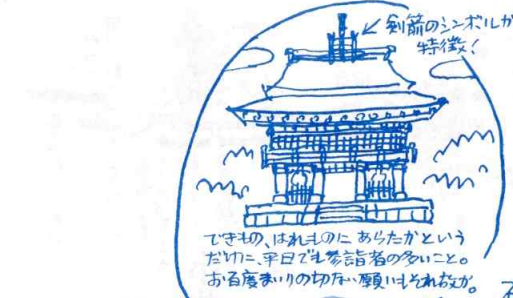 剣箭のシンボルが
特徴!
できもの、はれものに あらたかという
だけに、平日でも参詣者の多いこと。
お百度まいりの切ない願いもそれ故か。